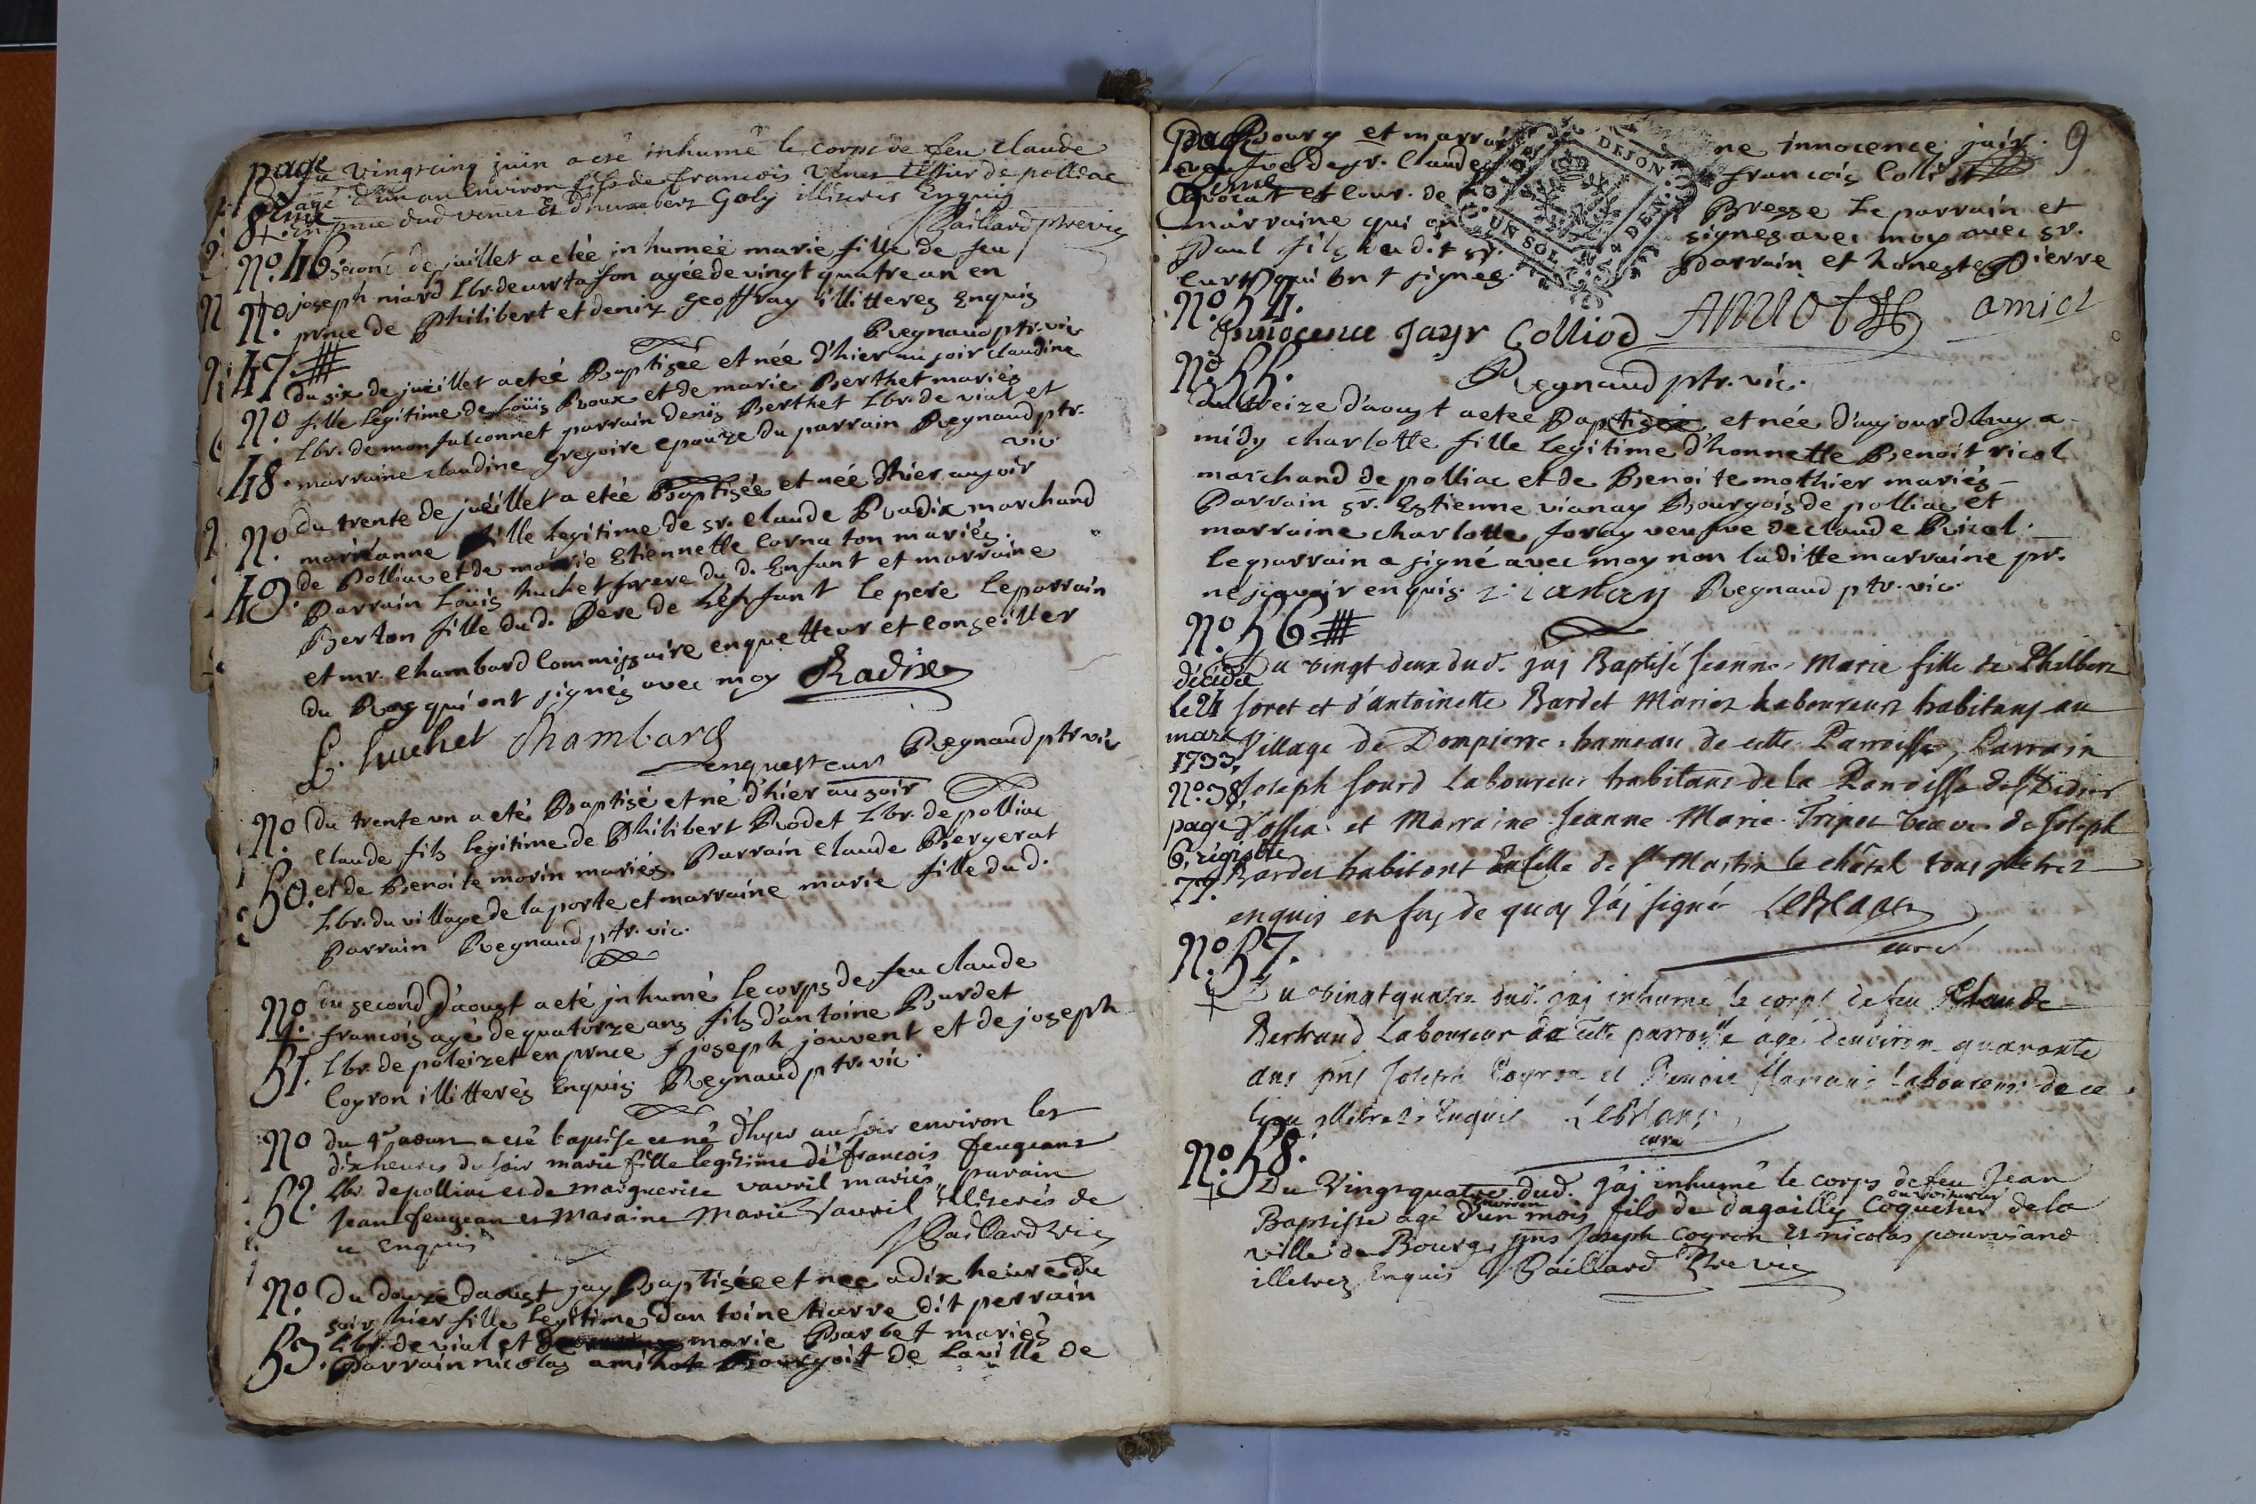 page
8eme
Du vingt cinq juin a esté inhumé le corps de feu Claude
agé d'un an environ fils de francois tissier de polliac
En pnce dud Goly illiterés Enquis
Paillard ptre vic
N°. 46.
second de juillet a etée inhumée marie fille de feu
joseph niard Lbr. de agée de vingt quatre an en
pnce de Philibert et denix geoffray illitteres Enquis
Regnaud ptr. vic
N°
47
du six de juëillet a eteé Baptisée et née d'hier au soir claudine
fille Legitime de Loüis Roux et de marie Berthet mariés
Lbr. de monfalconnet parrain denis Berthet Lbr. de vial et
marraine claudine gregoire epouze du parrain Regnaud ptr.
vic.
N°
48.
du trente de juëillet a etée Baptisée et née d'hier au soir
marieanne fille legitime de sr. claude Radix marchand
de Polliac et de marie Etiennette Cornaton mariés.
Parrain Loüis huchet frere du d. Enfant et marraine
Berton fille du d. Pere de L'enfant le pere le parrain
et mr. chambard Commissaire enquetteur et conseiller
du Roy qui ont signés avec moy Radix
N°
49.
L. huchet Chambard
enquesteur Regnaud ptr vic
N°
50.
Du trente un a eté Baptisé et né d'hier au soir
claude fils legitime de Philibert Rodet Lbr. de polliac
et de Benoite morin mariés. Parrain claude Bergerat
Lbr. du village de la porte et marraine marie fille du d.
Parrain Regnaud ptr. vic.
N°.
51.
du second d'aoust a eté inhumé le corps de feu claude
francois agé de quatorze ans fils d'antoine Burdet
Lbr. de poleizet en pnce joseph jouvent et de joseph
Coyron illitterés Enquis Regnaud ptr. vic.
N°
52.
du 4e aoust a esté baptisé et né d'hyer au soir environ les
dix heures du soir marie fille legitime de francois feugeant
lbr. de polliac et de marguerite vavril mariés, parain
Jean feugean et Maraine Marie vavril illiterés de
ce Enquis Paillard vic
N°.
53.
Du douze daoust jay Baptisée et nee a dix heure du
soir hier fille legitime dantoine tiarre dit perrain
Lbr. de vial et marie Barbet mariés
Parrain nicolas amihot Bourgoit de La ville de
page
9eme
9
Bourg et marrai ne innocence jair
veufve de sr. claude francois Colli
avocat et cour. de Bresse Le parrain et
marraine qui on signes avec moy avec sr.
Paul fils du dit sr. Parrain et honeste Pierre
Curt qui ont signes.
DIJON
UN SOL
N°. 54.
Innocence Jayr Colliod Amiot amiot
N° 55.
Regnaud ptr. vic.
du treize d'aoust a etee Baptisée et née d'aujourdhuy a
midy charlotte fille Legitime d'honnette Benoit ricol
marchand de polliac et de Benoite mothier mariés
Parrain sr. Estienne vianay Bourgois de polliac et
marraine charlotte foray veufve de claude Ricol.
le parrain a signé avec moy non laditte marraine pr.
ne sçavoir enquis. vianay Regnaud ptr. vic.
N°. 56
décédé
le 24
mars
1733,
N°. 38,
page
6, régistre
77.
Du vingt deux dud. jaj Baptisé Jeanne Marie fille de Philbert
foret et d'antoinette Bardet Mariez Laboureurs habitans au
Village de Dompierre, hameau de cette Parroisse, Parrain
Joseph Sourd Laboureur habitant de la Parroisse de St Didier
d'ossia et Marraine Jeanne Marie Tripoz veuve de Joseph
Bardet habitant de St Martin le châtel tous illetrez
enquis en foy de quoy j'aj signé LeBlanc
curé
N°. 57.
Du vingtquatre dud. jaj inhumé le corps de feu Claude
Bertrand Laboureur de cette parroisse agé d'environ quarante
ans pns Joseph Coyron et Benoit Laboureurs de ce
lieu illetrez Enquis LeBlanc
curé
N°. 58.
Du Vingtquatre dud. j'aj inhumé le corps de feu Jean
Baptiste agé d'un environ mois fils de dagailly Coquetier ou voiturier de la
ville de Bourg, pns Joseph Coyron et nicolas pourviand
illetrez Enquis Paillard Ptre vic